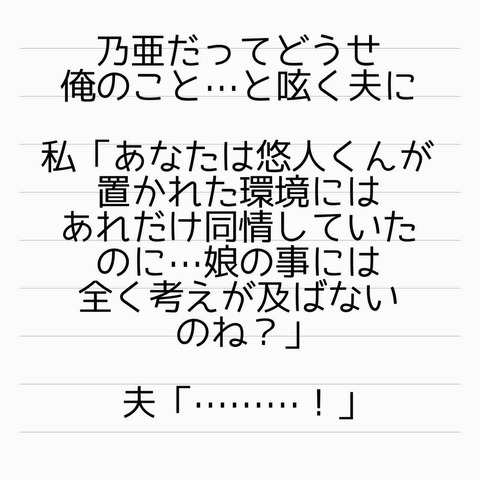 乃亜だってどうせ
俺のこと…と呟く夫に
私「あなたは悠人くんが
置かれた環境には
あれだけ同情していた
のに…娘の事には
全く考えが及ばない
のね？」
夫「………！」